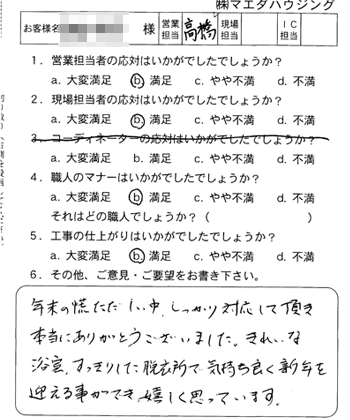 ㈱マエダハウジング
お客様名 様 営業担当 高橋 現場担当 IC担当
1．営業担当者の応対はいかがでしたでしょうか？
a. 大変満足 b. 満足 c. やや不満 d. 不満
2．現場担当者の応対はいかがでしたでしょうか？
a. 大変満足 b. 満足 c. やや不満 d. 不満
3．コーディネーターの応対はいかがでしたでしょうか？
a. 大変満足 b. 満足 c. やや不満 d. 不満
4．職人のマナーはいかがでしたでしょうか？
a. 大変満足 b. 満足 c. やや不満 d. 不満
それはどの職人でしょうか？（ ）
5．工事の仕上がりはいかがでしたでしょうか？
a. 大変満足 b. 満足 c. やや不満 d. 不満
6．その他、ご意見・ご要望をお書き下さい。
年末の慌ただしい中、しっかり対応して頂き
本当にありがとうございました。きれいな
浴室、すっきりした脱衣所で気持ち良く新年を
迎える事ができ、嬉しく思っています。